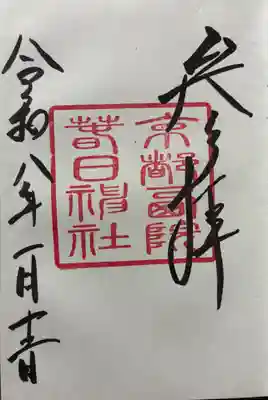 奉拝
京都西院
春日神社
令和八年一月十日